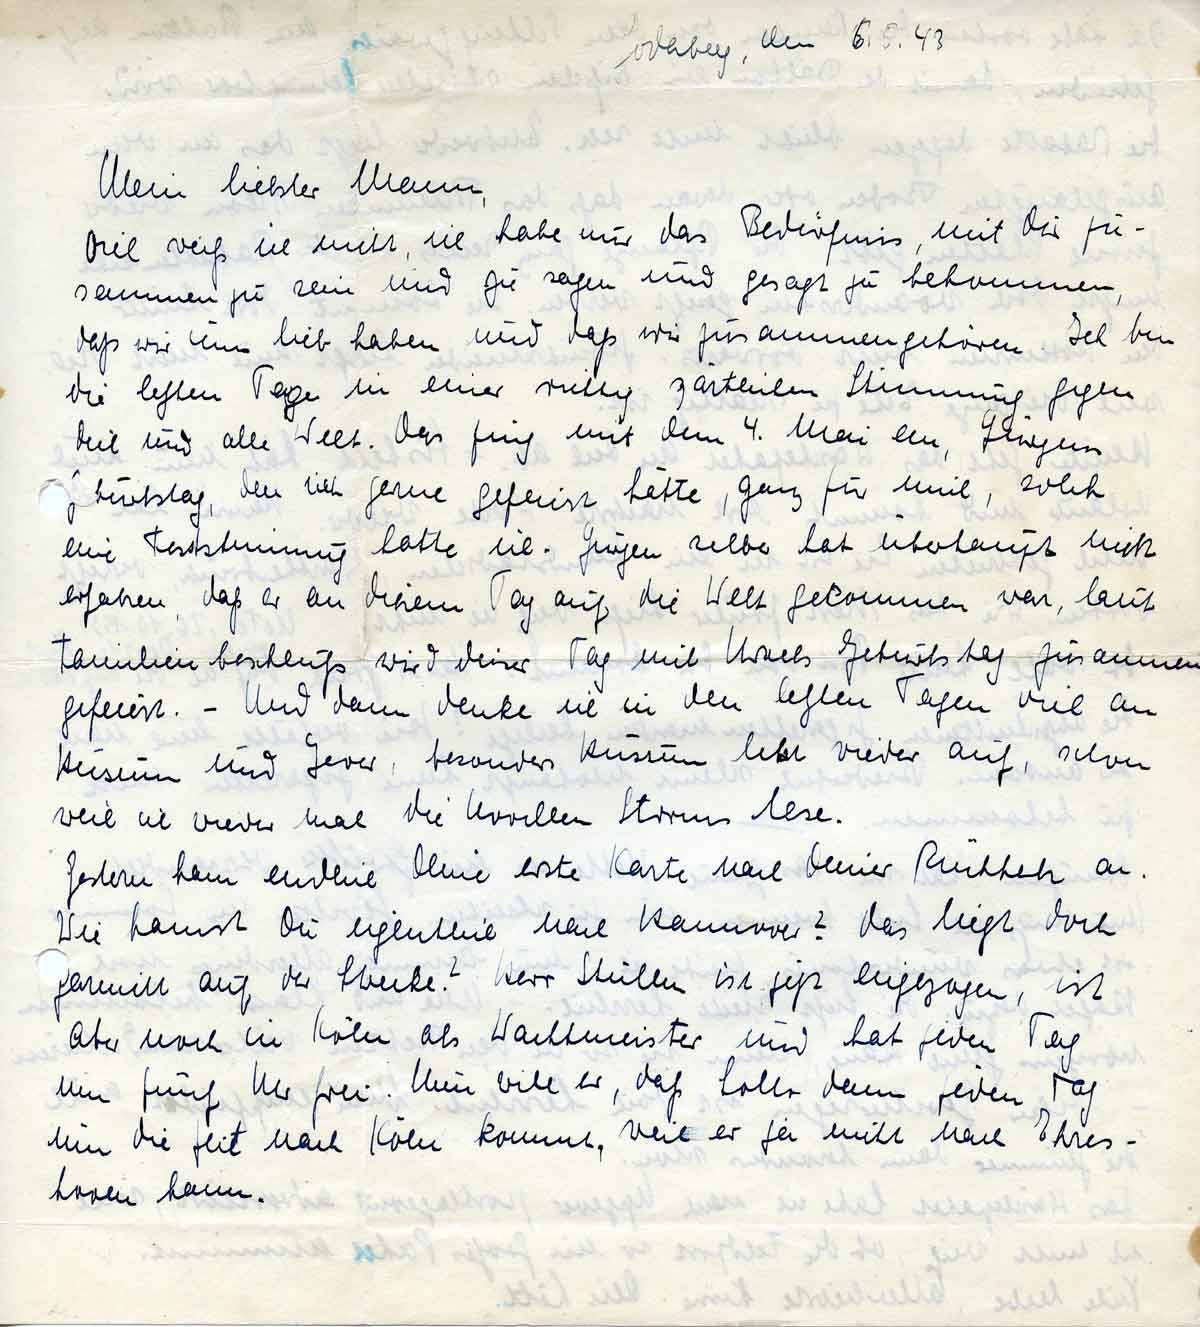 den 6.5.43
Mein liebster Mann,
viel weiß ich nicht, ich habe nur das Bedürfnis, mit Dir zu-
sammen zu sein und zu sagen und gesagt zu bekommen,
daß wir uns lieb haben und daß wir zusammengehören. Ich bin
die letzten Tage in einer richtig zärtlichen Stimmung gegen
dich und alle Welt. Das fing mit dem 4. Mai an, Jürgens
Geburtstag, den ich gerne gefeiert hätte, ganz für mich, solch
eine Feststimmung hatte ich. Jürgen selber hat überhaupt nicht
erfahren, daß er an diesem Tag auf die Welt gekommen war, laut
Familienbeschluß wird dieser Tag mit Geburtstag zusammen
gefeiert. – Und dann denke ich in den letzten Tagen viel an
Husum und Jever, besonders Husum lebt wieder auf, schon
weil ich wieder mal die Novellen Storms lese.
Gestern kam endlich Deine erste Karte nach Deiner Rückkehr an.
Wie kamst Du eigentlich nach Hannover? Das liegt doch
garnicht auf der Strecke? Herr Stüllen ist jetzt eingezogen, ist
aber noch in Köln als Wachtmeister und hat jeden Tag
um fünf Uhr frei. Nun will er, daß dann jeden Tag
um die Zeit nach Köln kommt, weil er ja nicht nach Ehres-
hoven kann.